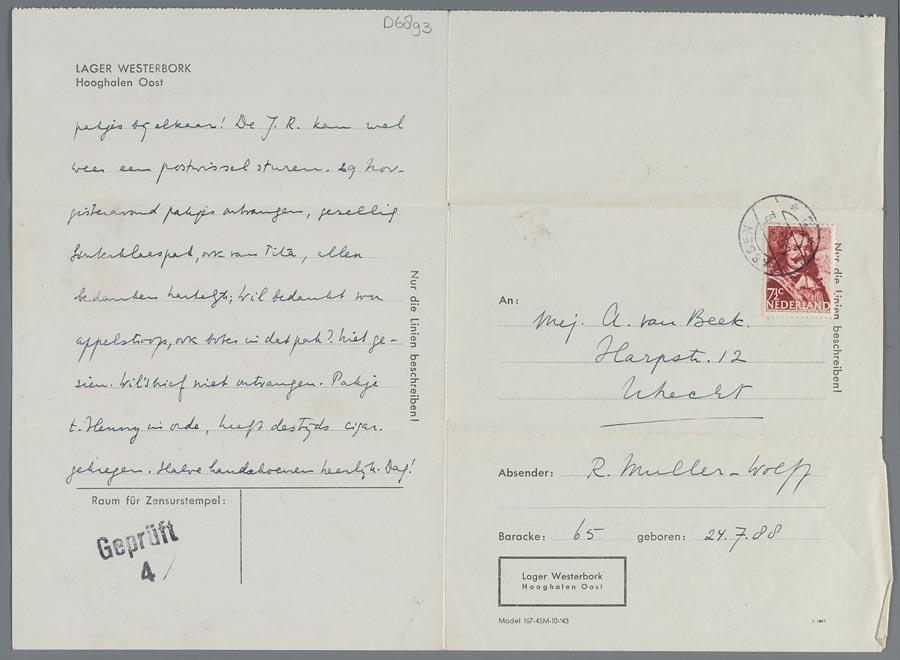 D6893
LAGER WESTERBORK
Hooghalen Oost
pakjes bij elkaar! De J. R. kan wel
weer een postwissel sturen. 29 Nov-
gisteravond pakjes ontvangen, gezellig
Sinterklaaspak, ook van Tita, allen
bedanken hartelijk; Wil bedankt voor
appelstroop, ook boter in dat pak? Niet ge-
zien. Wil's brief niet ontvangen. Pakje
t. Henny in orde, heeft destijds cigar.
gekregen. Halve handschoenen heerlijk. Dag!
Nur die Linien beschreiben!
Raum für Zensurstempel:
Geprüft
4
ASSEN
7½ c
NEDERLAND
Nur die Linien beschreiben!
An:
Mej. A. van Beek.
Harpstr. 12
Utrecht
Absender: R. Muller-Wolff
Baracke: 65 geboren: 24.7.88
Lager Westerbork
Hooghalen Oost
Model 167-45M-10-'43